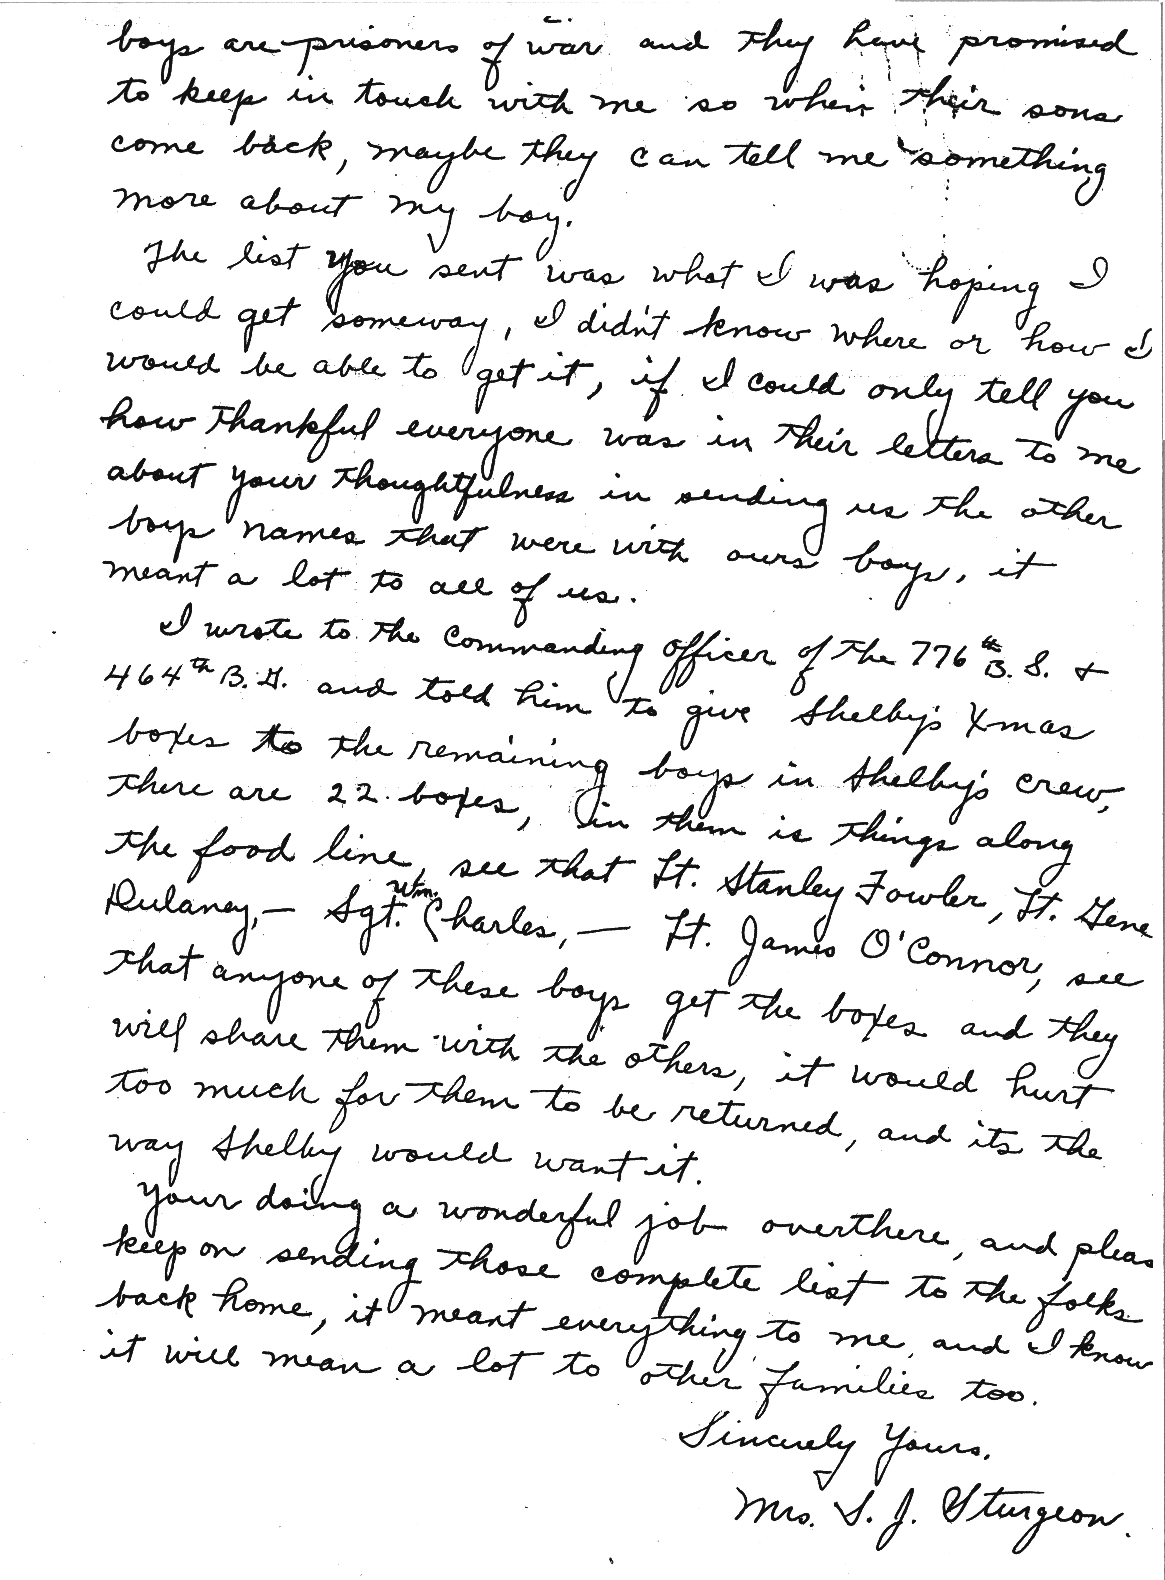 boys are prisoners of war and they have promised
to keep in touch with me so when their sons
come back, maybe they can tell me something
more about my boy.
The list you sent was what I was hoping I
could get someway, I didn't know where or how I
would be able to get it, if I could only tell you
how thankful everyone was in their letters to me
about your thoughtfulness in sending us the other
boys names that were with ours boys, it
meant a lot to all of us.
I wrote to the Commanding Officer of the 776th B. S. &
464th B. G. and told him to give Shelby's Xmas
boxes to the remaining boys in Shelby's crew,
there are 22 boxes, in them is things along
the food line, see that Lt. Stanley Fowler, Lt. Gene
Dulaney, — Sgt. Wm. Charles, — Lt. James O'Connor, see
that anyone of these boys get the boxes and they
will share them with the others, it would hurt
too much for them to be returned, and its the
way Shelby would want it.
Your doing a wonderful job overthere, and pleas
keep on sending those complete list to the folks
back home, it meant everything to me, and I know
it will mean a lot to other families too.
Sincerely Yours.
Mrs. S. J. Sturgeon.